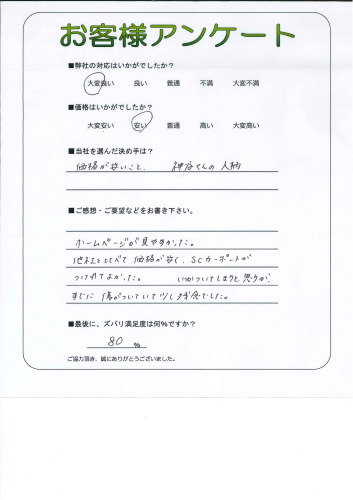 お客様アンケート
■弊社の対応はいかがでしたか？
大変良い 良い 普通 不満 大変不満
■価格はいかがでしたか？
大変安い 安い 普通 高い 大変高い
■当社を選んだ決め手は？
価格が安いこと、 神谷さんの人柄
■ご感想・ご要望などをお書き下さい。
ホームページが見やすかった。
他社とくらべて価格が安く、SCカーポートが
つけれてよかった。 いつかついてしまうと思うが
すぐに傷がついていて少し残念でした。
■最後に、ズバリ満足度は何%ですか？
80 %
ご協力頂き、誠にありがとうございました。